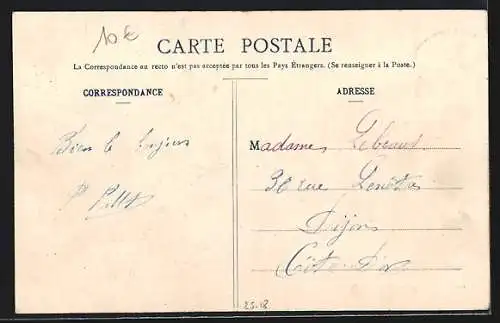 10€
CARTE POSTALE
La Correspondance au recto n'est pas acceptée par tous les Pays Étrangers. (Se renseigner à la Poste.)
CORRESPONDANCE
ADRESSE
Bien le
Madame
36 rue
Dijon
Côte-d'Or